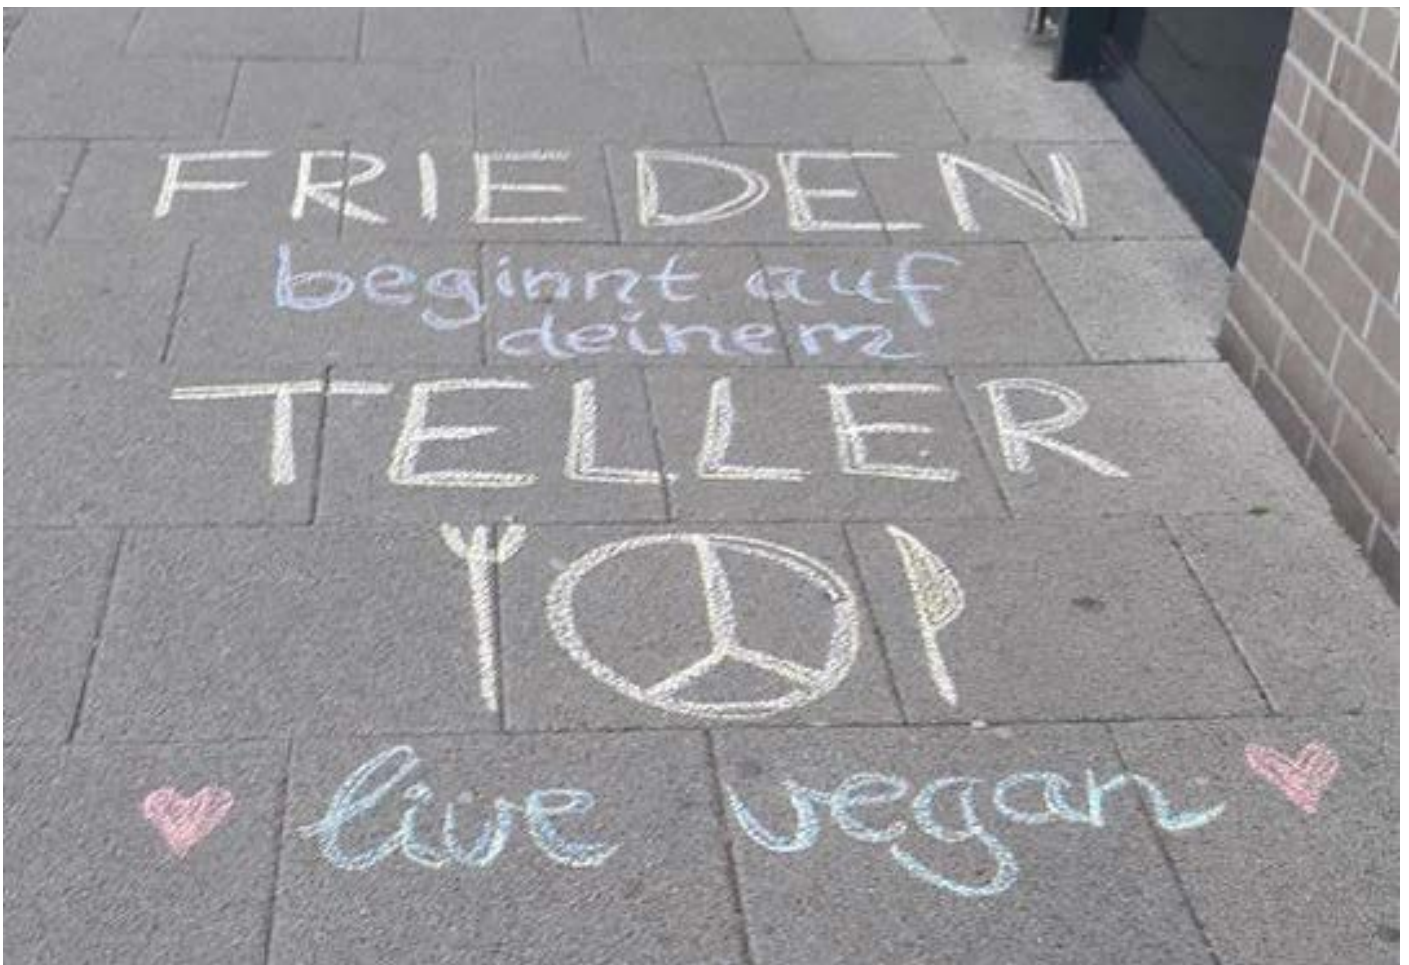 FRIEDEN
beginnt auf
deinem
TELLER
live vegan